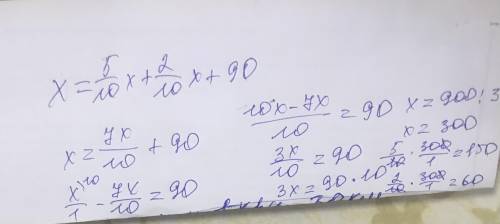 x = 5/10 x + 2/10 x + 90
x = 7x/10 + 90
x\10/1 - 7x/10 = 90
10x - 7x/10 = 90
3x/10 = 90
3x = 90 · 10
x = 900 : 3
x = 300
5/10 · 300/1 = 150
2/10 · 300/1 = 60